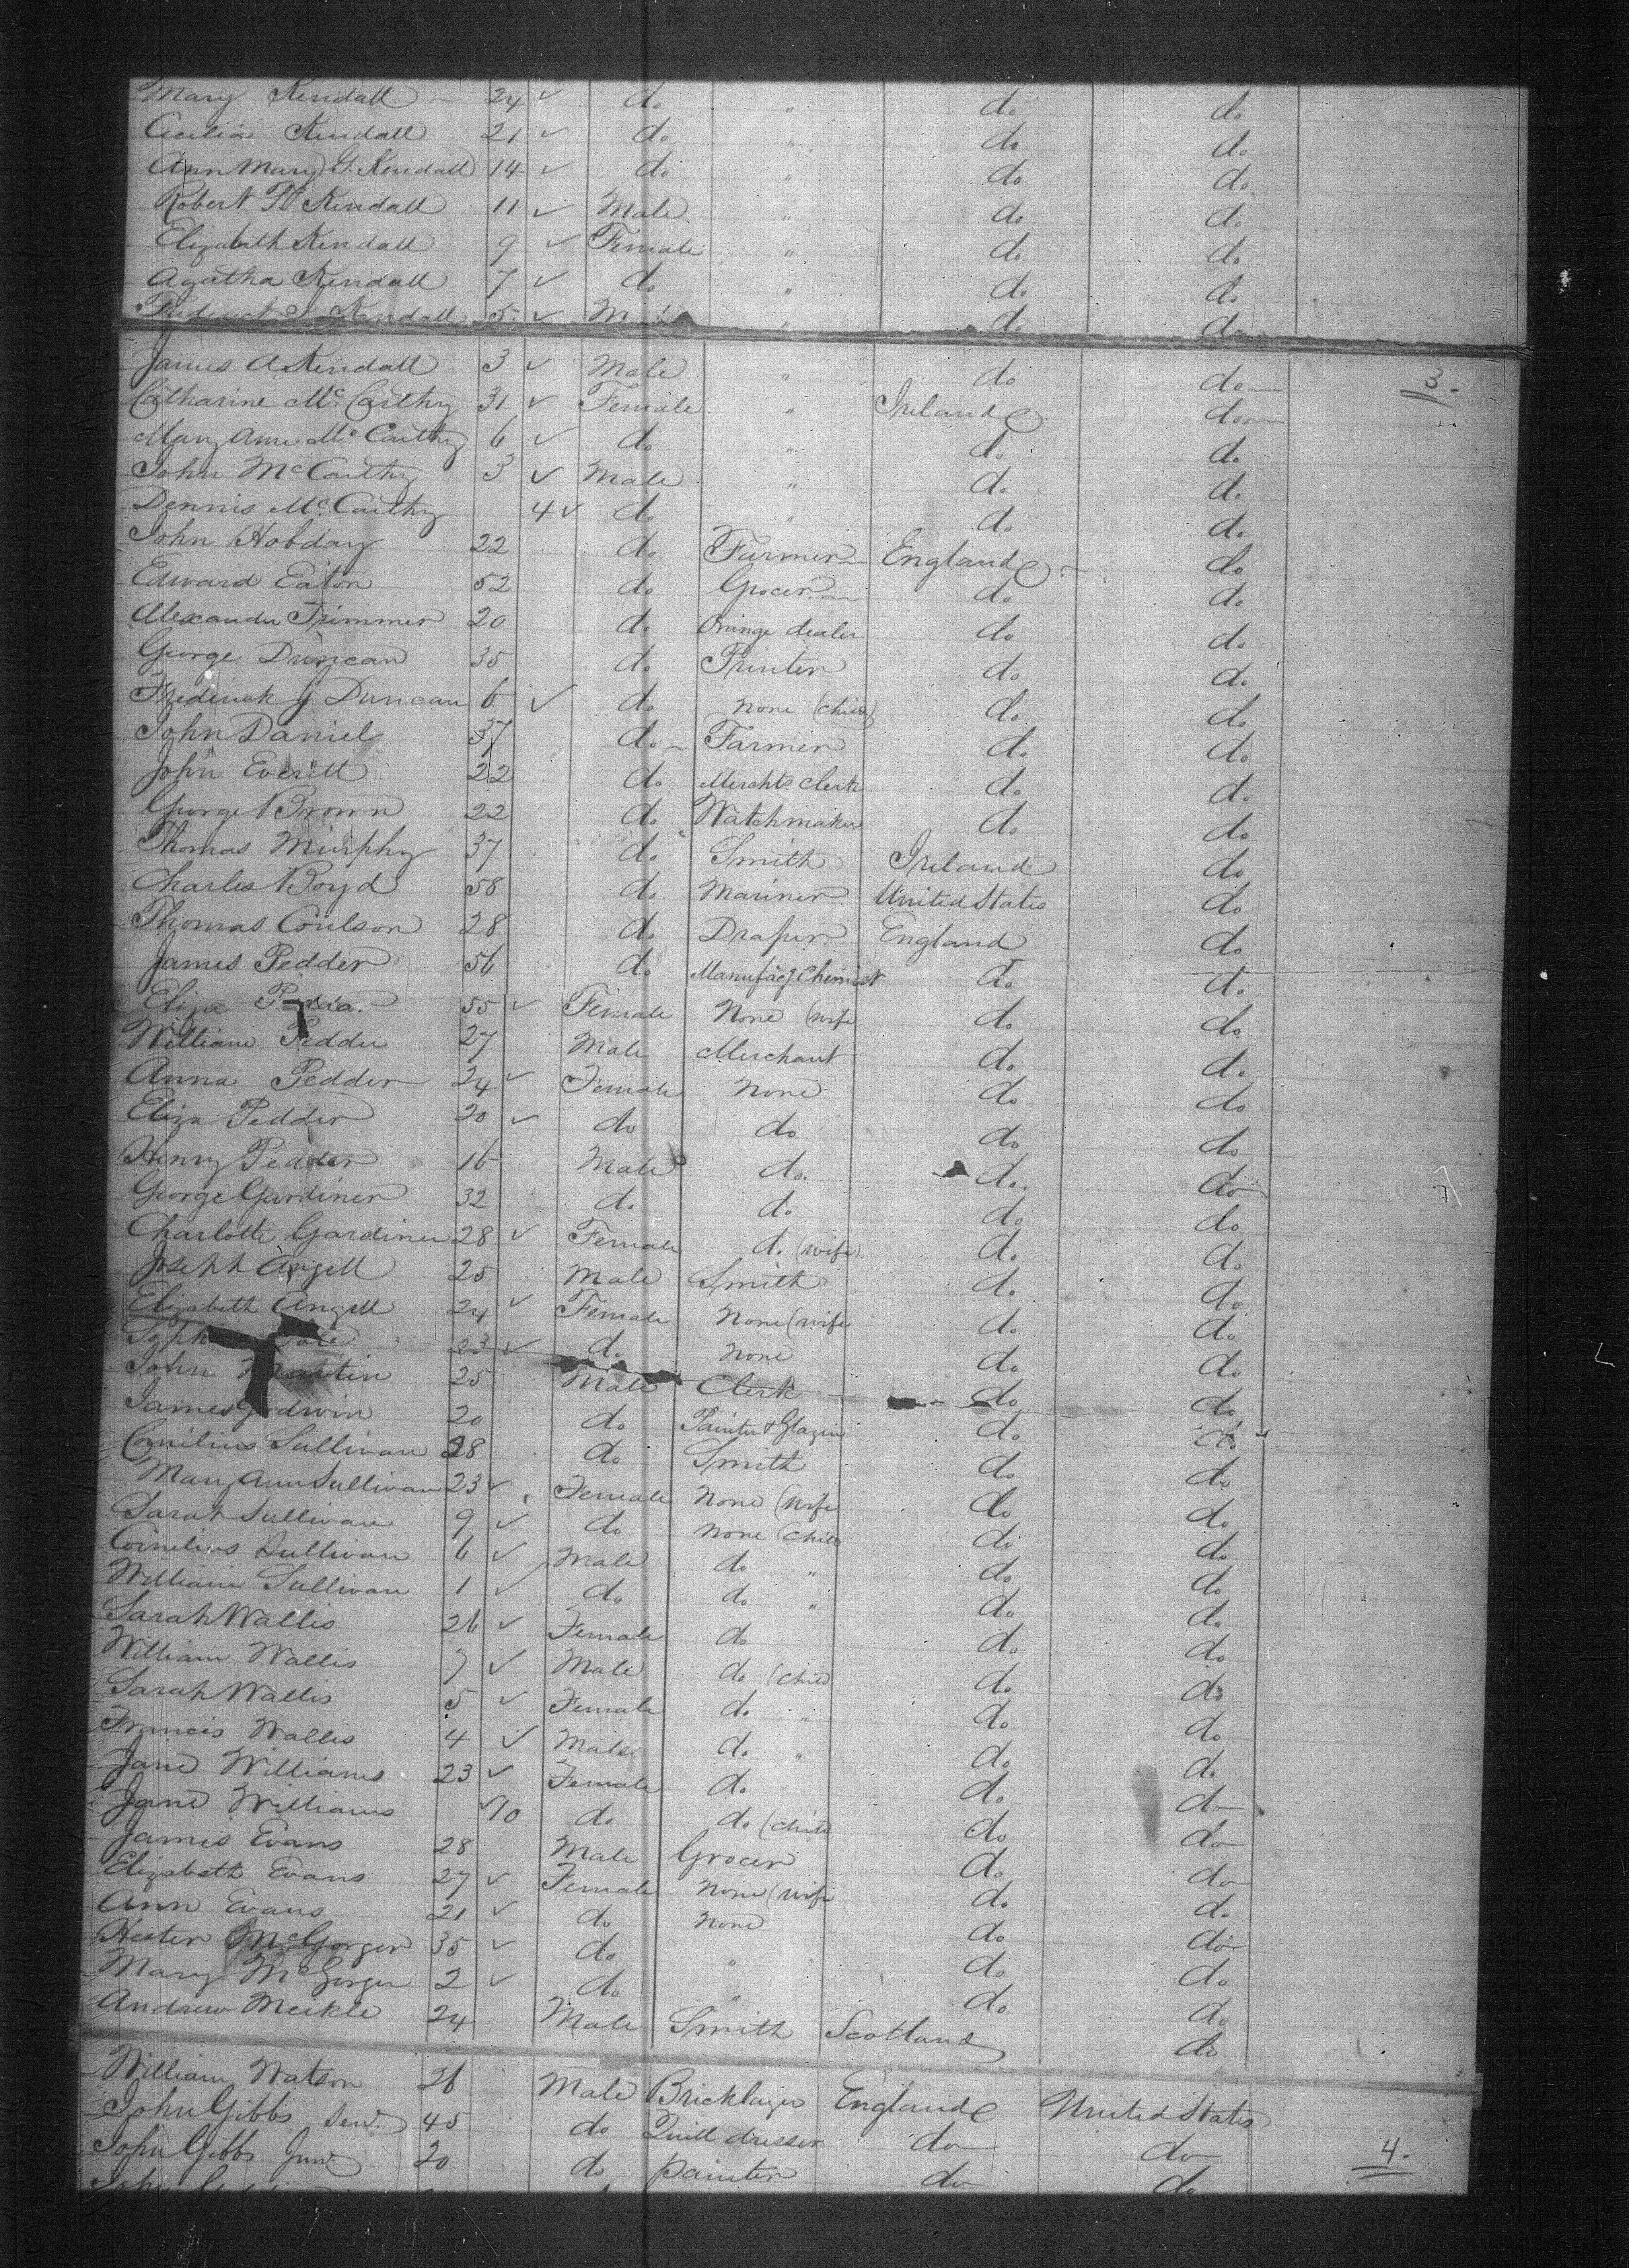 Mary Kendall 24 ✓ do " do do
Cecilia Kendall 21 ✓ do " do do
Ann Mary G. Kendall 14 ✓ do " do do
Robert Kendall 11 ✓ Male " do do
Elizabeth Kendall 9 ✓ Female " do do
Agatha Kendall 7 ✓ do " do do
Frederick Kendall 5 ✓ " do do
James A Kendall 3 ✓ Male " do do 3.
Catharine Mc Carthy 31 ✓ Female " Ireland do
Mary Ann Mc Carthy 6 ✓ do " do do
John Mc Carthy 3 ✓ Male " do do
Dennis Mc Carthy 4 ✓ do " do do
John Hobday 22 do Farmer England do
Edward Eaton 52 do Grocer do do
Alexander Trimmer 20 do Orange dealer do do
George Duncan 35 do Printer do do
Frederick J Duncan 6 ✓ do none (child) do do
John Daniel 37 do Farmer do do
John Everitt 22 do Merchts. Clerk do do
George Brown 22 do Watchmaker do do
Thomas Murphy 37 do Smith Ireland do
Charles Boyd 58 do Mariner United States do
Thomas Coulson 28 do Draper England do
James Pedder 56 do Manufacg Chemist do do
Eliza 55 ✓ Female None (wife do do
William Pedder 27 Male Merchant do do
Anna Pedder 24 ✓ Female None do do
Eliza Pedder 20 ✓ do do do do
Henry Pedder 16 Male do. do. do
George Gardiner 32 do do do do
Charlotte Gardiner 28 ✓ Female do (wife) do do
Joseph Angell 25 Male Smith do do
Elizabeth Angell 24 ✓ Female None (wife do do
23 ✓ do None do do
John Martin 25 Male Clerk do do
James Godwin 20 do Painter & Glazier do do
Cornelius Sullivan 28 do Smith do do
Mary Ann Sullivan 23 ✓ Female None (wife do do
Sarah Sullivan 9 ✓ do none (child do do
Cornelius Sullivan 6 ✓ Male do " do do
William Sullivan 1 ✓ do do " do do
Sarah Wallis 26 ✓ Female do do do
William Wallis 7 ✓ Male do (child do do
Sarah Wallis 5 ✓ Female do " do do
Francis Wallis 4 ✓ Male do " do do
Jane Williams 23 ✓ Female do do do
Jane Williams ✓10 do do (child do do
James Evans 28 Male Grocer do do
Elizabeth Evans 27 ✓ Female None (wife do do
Ann Evans 21 ✓ do None do do
Hester McGorger 35 ✓ do " do do
Mary McGorger 2 ✓ do " do do
Andrew Meikle 24 Male Smith Scotland do
William Watson 26 Male Bricklayer England United States
John Gibbs Senr. 45 do Quill dresser do do 4.
John Gibbs Junr. 20 do painter do do